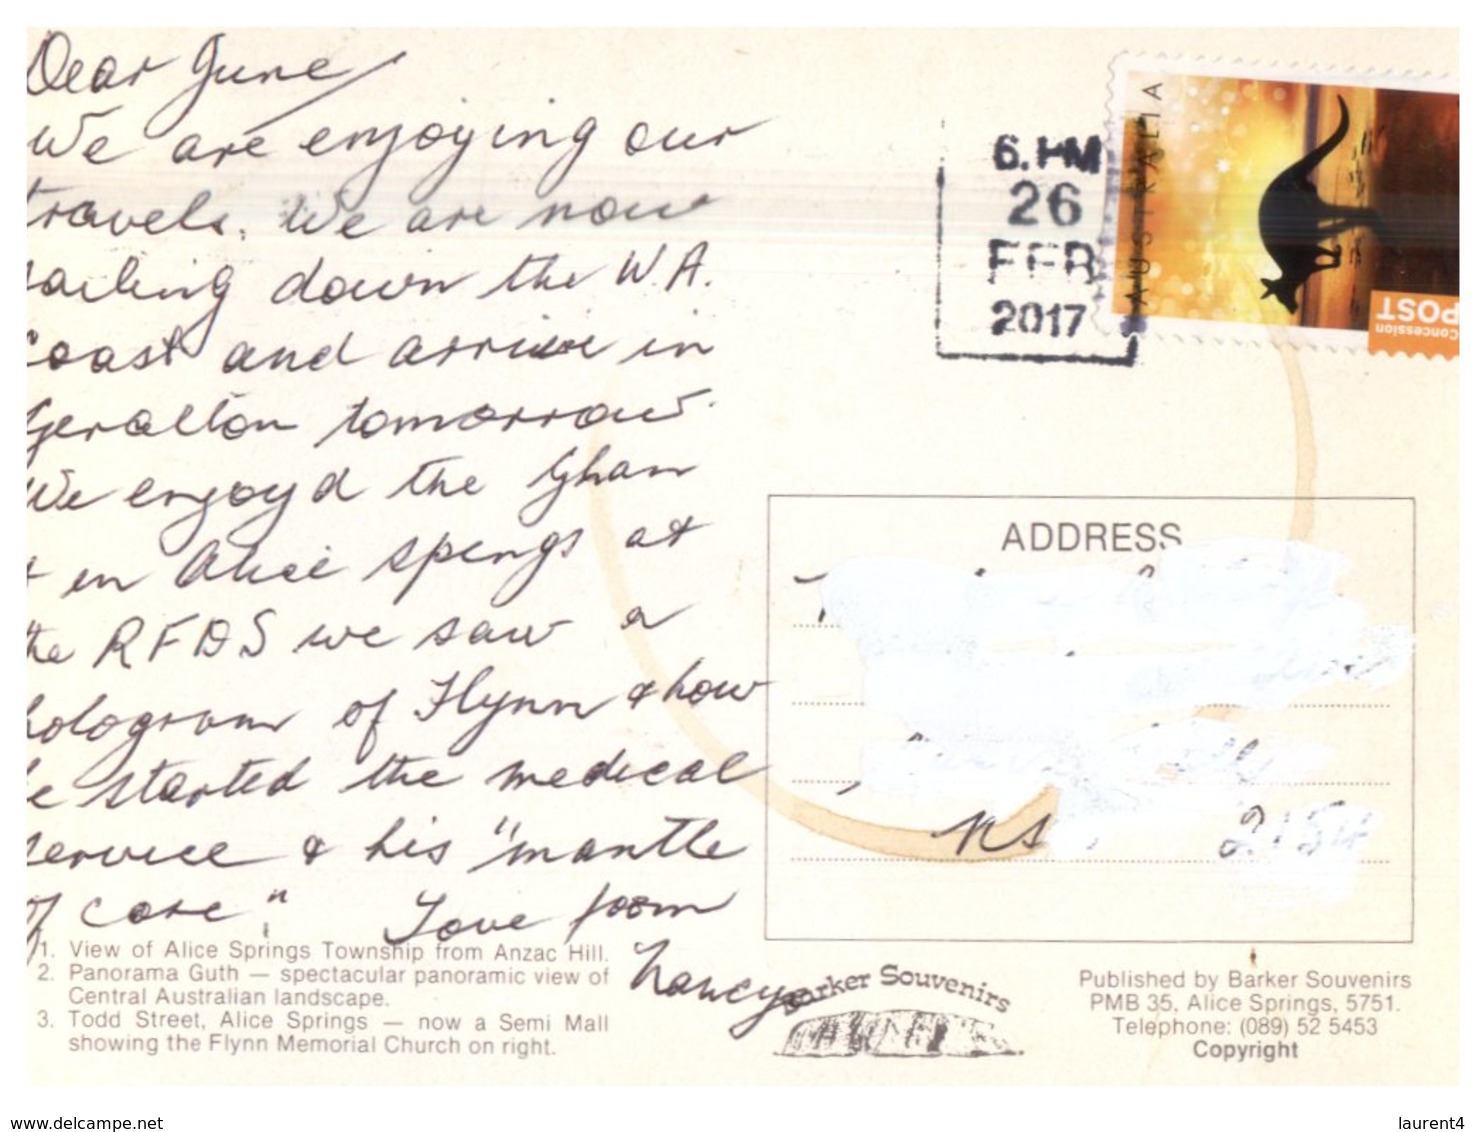 Dear June,
We are enjoying our
travels. We are now
sailing down the W.A.
coast and arrive in
Geralton tomorrow.
We enjoyd the Ghan
+ in Alice Springs at
the RFDS we saw a
hologram of Flynn & how
he started the medical
service & his "mantle
of care". Love from
Nancy
1. View of Alice Springs Township from Anzac Hill.
2. Panorama Guth — spectacular panoramic view of
Central Australian landscape.
3. Todd Street, Alice Springs — now a Semi Mall
showing the Flynn Memorial Church on right.
6. PM
26
FEB
2017
AUSTRALIA
Concession
POST
ADDRESS
NS 2154
Barker Souvenirs
Published by Barker Souvenirs
PMB 35, Alice Springs, 5751.
Telephone: (089) 52 5453
Copyright
www.delcampe.net
laurent4